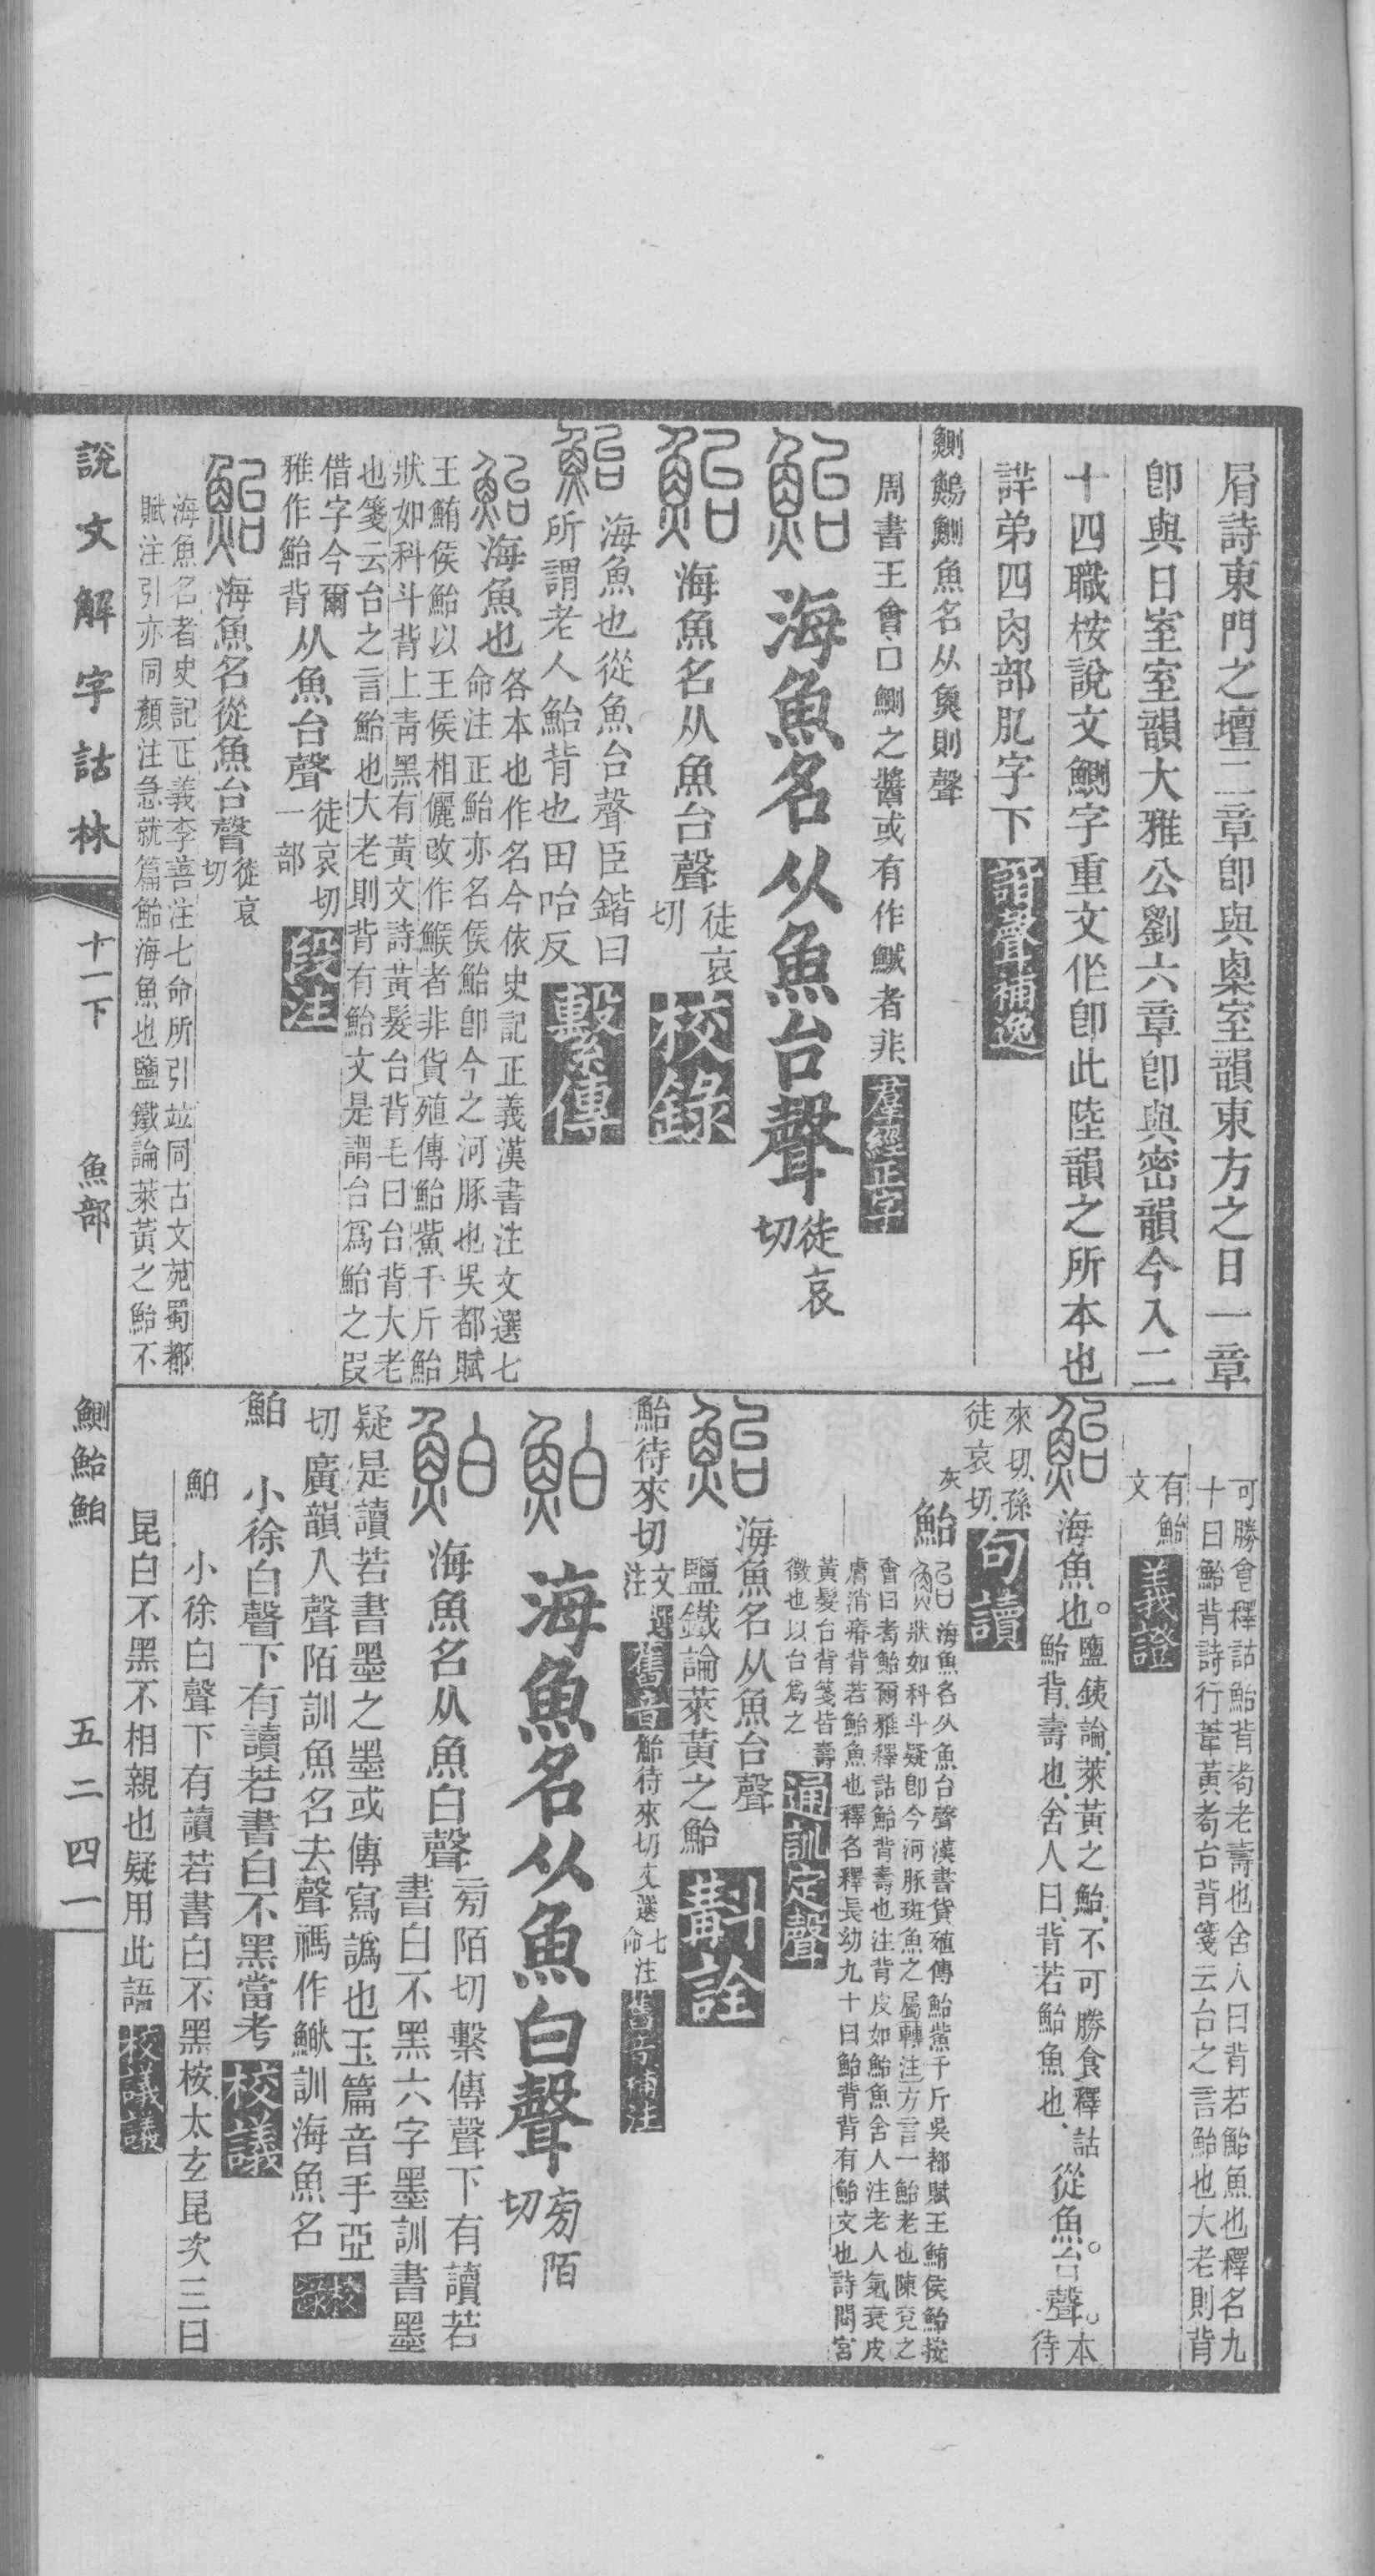 屑詩東門之壇二章卽與㮚室韻東方之日一章
卽與日室室韻大雅公劉六章卽與密韻今入二
十四職桉說文鰂字重文作卽此陸韻之所本也
詳弟四肉部肊字下 諧聲補逸
鰂鷠鰂魚名从𤋳則聲
周書王會口鰂之醬或有作鰄者非 羣經正字
海魚名从魚台聲 徒哀切
海魚名从魚台聲 徒哀切 校錄
海魚也從魚台聲臣鍇曰
所謂老人鮐背也田咍反 繫傳
海魚也 各本也作名今依史記正義漢書注文選七
命注正鮐亦名侯鮐卽今之河豚也吳都賦
王鮪侯鮐以王侯相儷改作鯸者非貨殖傳鮐鮆千斤鮐
狀如科斗背上靑黑有黃文詩黃髮台背毛曰台背大老
也箋云台之言鮐也大老則背有鮐文是謂台爲鮐之叚
借字今爾
雅作鮐背 从魚台聲 徒哀切
一部 段注
海魚名從魚台聲 徒哀切
海魚名者史記正義李善注七命所引竝同古文苑蜀都
賦注引亦同顏注急就篇鮐海魚也鹽鐵論萊黃之鮐不
可勝食釋詁鮐背耇老壽也舍人曰背若鮐魚也釋名九
十曰鮐背詩行葦黃耇台背箋云台之言鮐也大老則背
有鮐
文 義證
海魚也。 鹽鐵論、萊黃之鮐、不可勝食、釋詁
鮐背、壽也、舍人曰、背若鮐魚也、 從魚。台聲。 本
待
來切、孫
徒哀切、 句讀
灰
鮐 海魚名从魚台聲漢書貨殖傳鮐鮆千斤吳都賦王鮪侯鮐按
狀如科斗疑卽今河豚斑魚之屬轉注方言一鮐老也陳兗之
會曰耇鮐爾雅釋詁鮐背壽也注背皮如鮐魚舍人注老人氣衰皮
膚消瘠背若鮐魚也釋名釋長幼九十曰鮐背背有鮐文也詩閟宮
黃髮台背箋皆壽
徵也以台爲之 通訓定聲
海魚名从魚台聲
鹽鐵論萊黃之鮐 斠詮
鮐待來切 文選注 舊音 鮐待來切文選七命注 舊音補注
海魚名从魚白聲 㫄陌切
海魚名从魚白聲 㫄陌切繫傳聲下有讀若
書白不黑六字墨訓書墨
疑是讀若書墨之墨或傳寫譌也玉篇音手亞
切廣韻入聲陌訓魚名去聲禡作鮛訓海魚名 校錄
鮊 小徐白聲下有讀若書白不黑當考 校議
鮊 小徐白聲下有讀若書白不黑桉太玄昆次三曰
昆白不黑不相親也疑用此語 校議議
說文解字詁林
十一下
魚部
鰂鮐鮊
五二四一